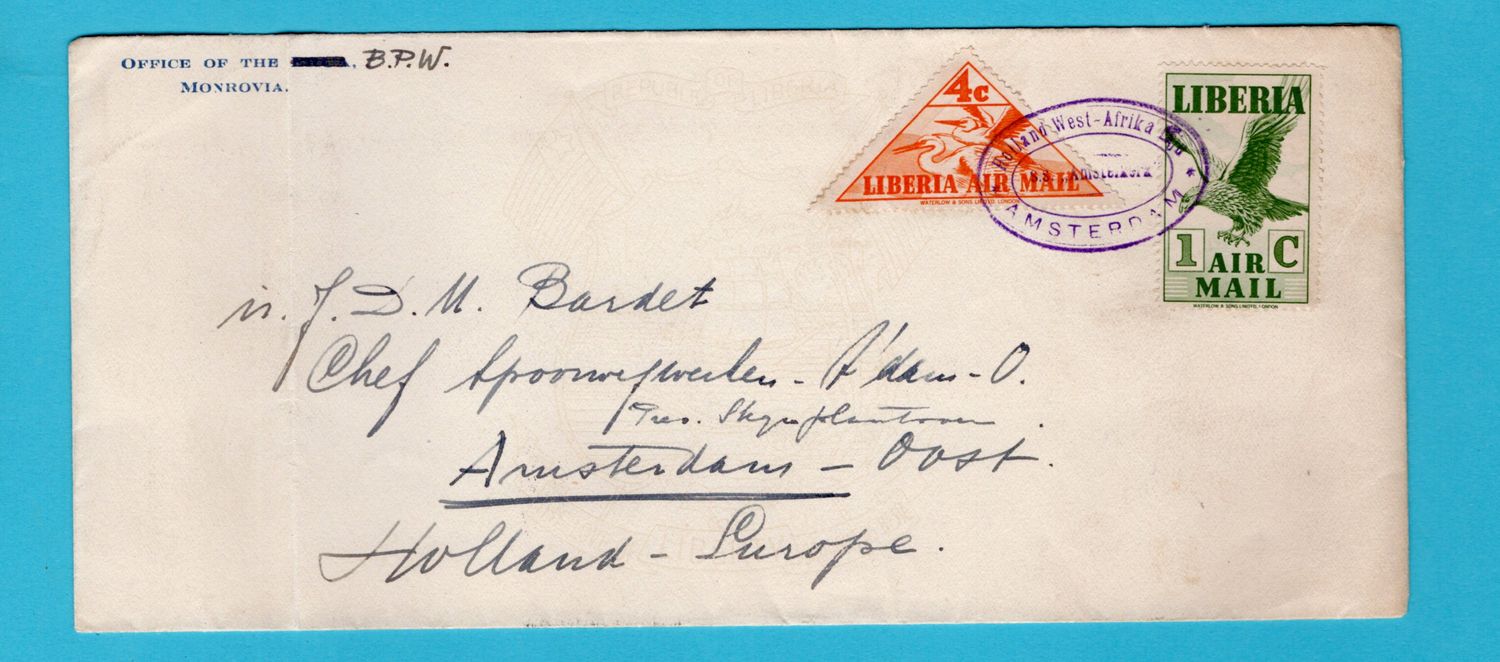 OFFICE OF THE , B.P.W.
MONROVIA.
4c
LIBERIA AIR MAIL
WATERLOW & SONS LIMITED, LONDON
Holland West-Afrika Lijn
AMSTERDAM
LIBERIA
1 C
AIR
MAIL
WATERLOW & SONS LIMITED, LONDON
ir. J. D. M. Bardet
Chef Spoorwegwerken - A'dam - O.
Amsterdam - Oost.
Holland - Europe.